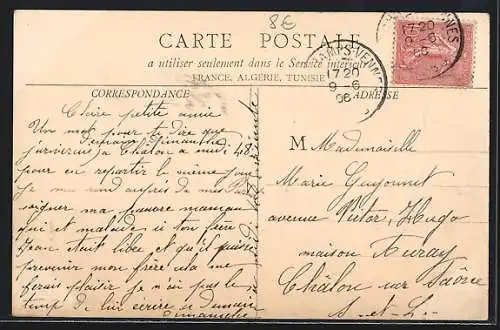 8€
CARTE POSTALE
a utiliser seulement dans le Service intérieur
FRANCE, ALGÉRIE, TUNISIE
CORRESPONDANCE
ADRESSE
CHAMPS-VENNES
17 20
9 - 6
06
17 20
9 - 6
06
Chère petite amie
Un mot pour te dire que
demain dimanche
j'arriverai a Chalon a midi 48
pour en repartir le meme jour
je me rend auprès de
soigner ma pauvre maman
qui et malade si ton frère
Jean était libre et qu'il puisse
prevenir mon frère cela me
ferais plaisir je n'ai pas le
temp de lui écrire
dimanche
M Mademoiselle
Marie Guyonnet
avenue Victor, Hugo
maison Furay
Châlon sur Saône
S - et - L -